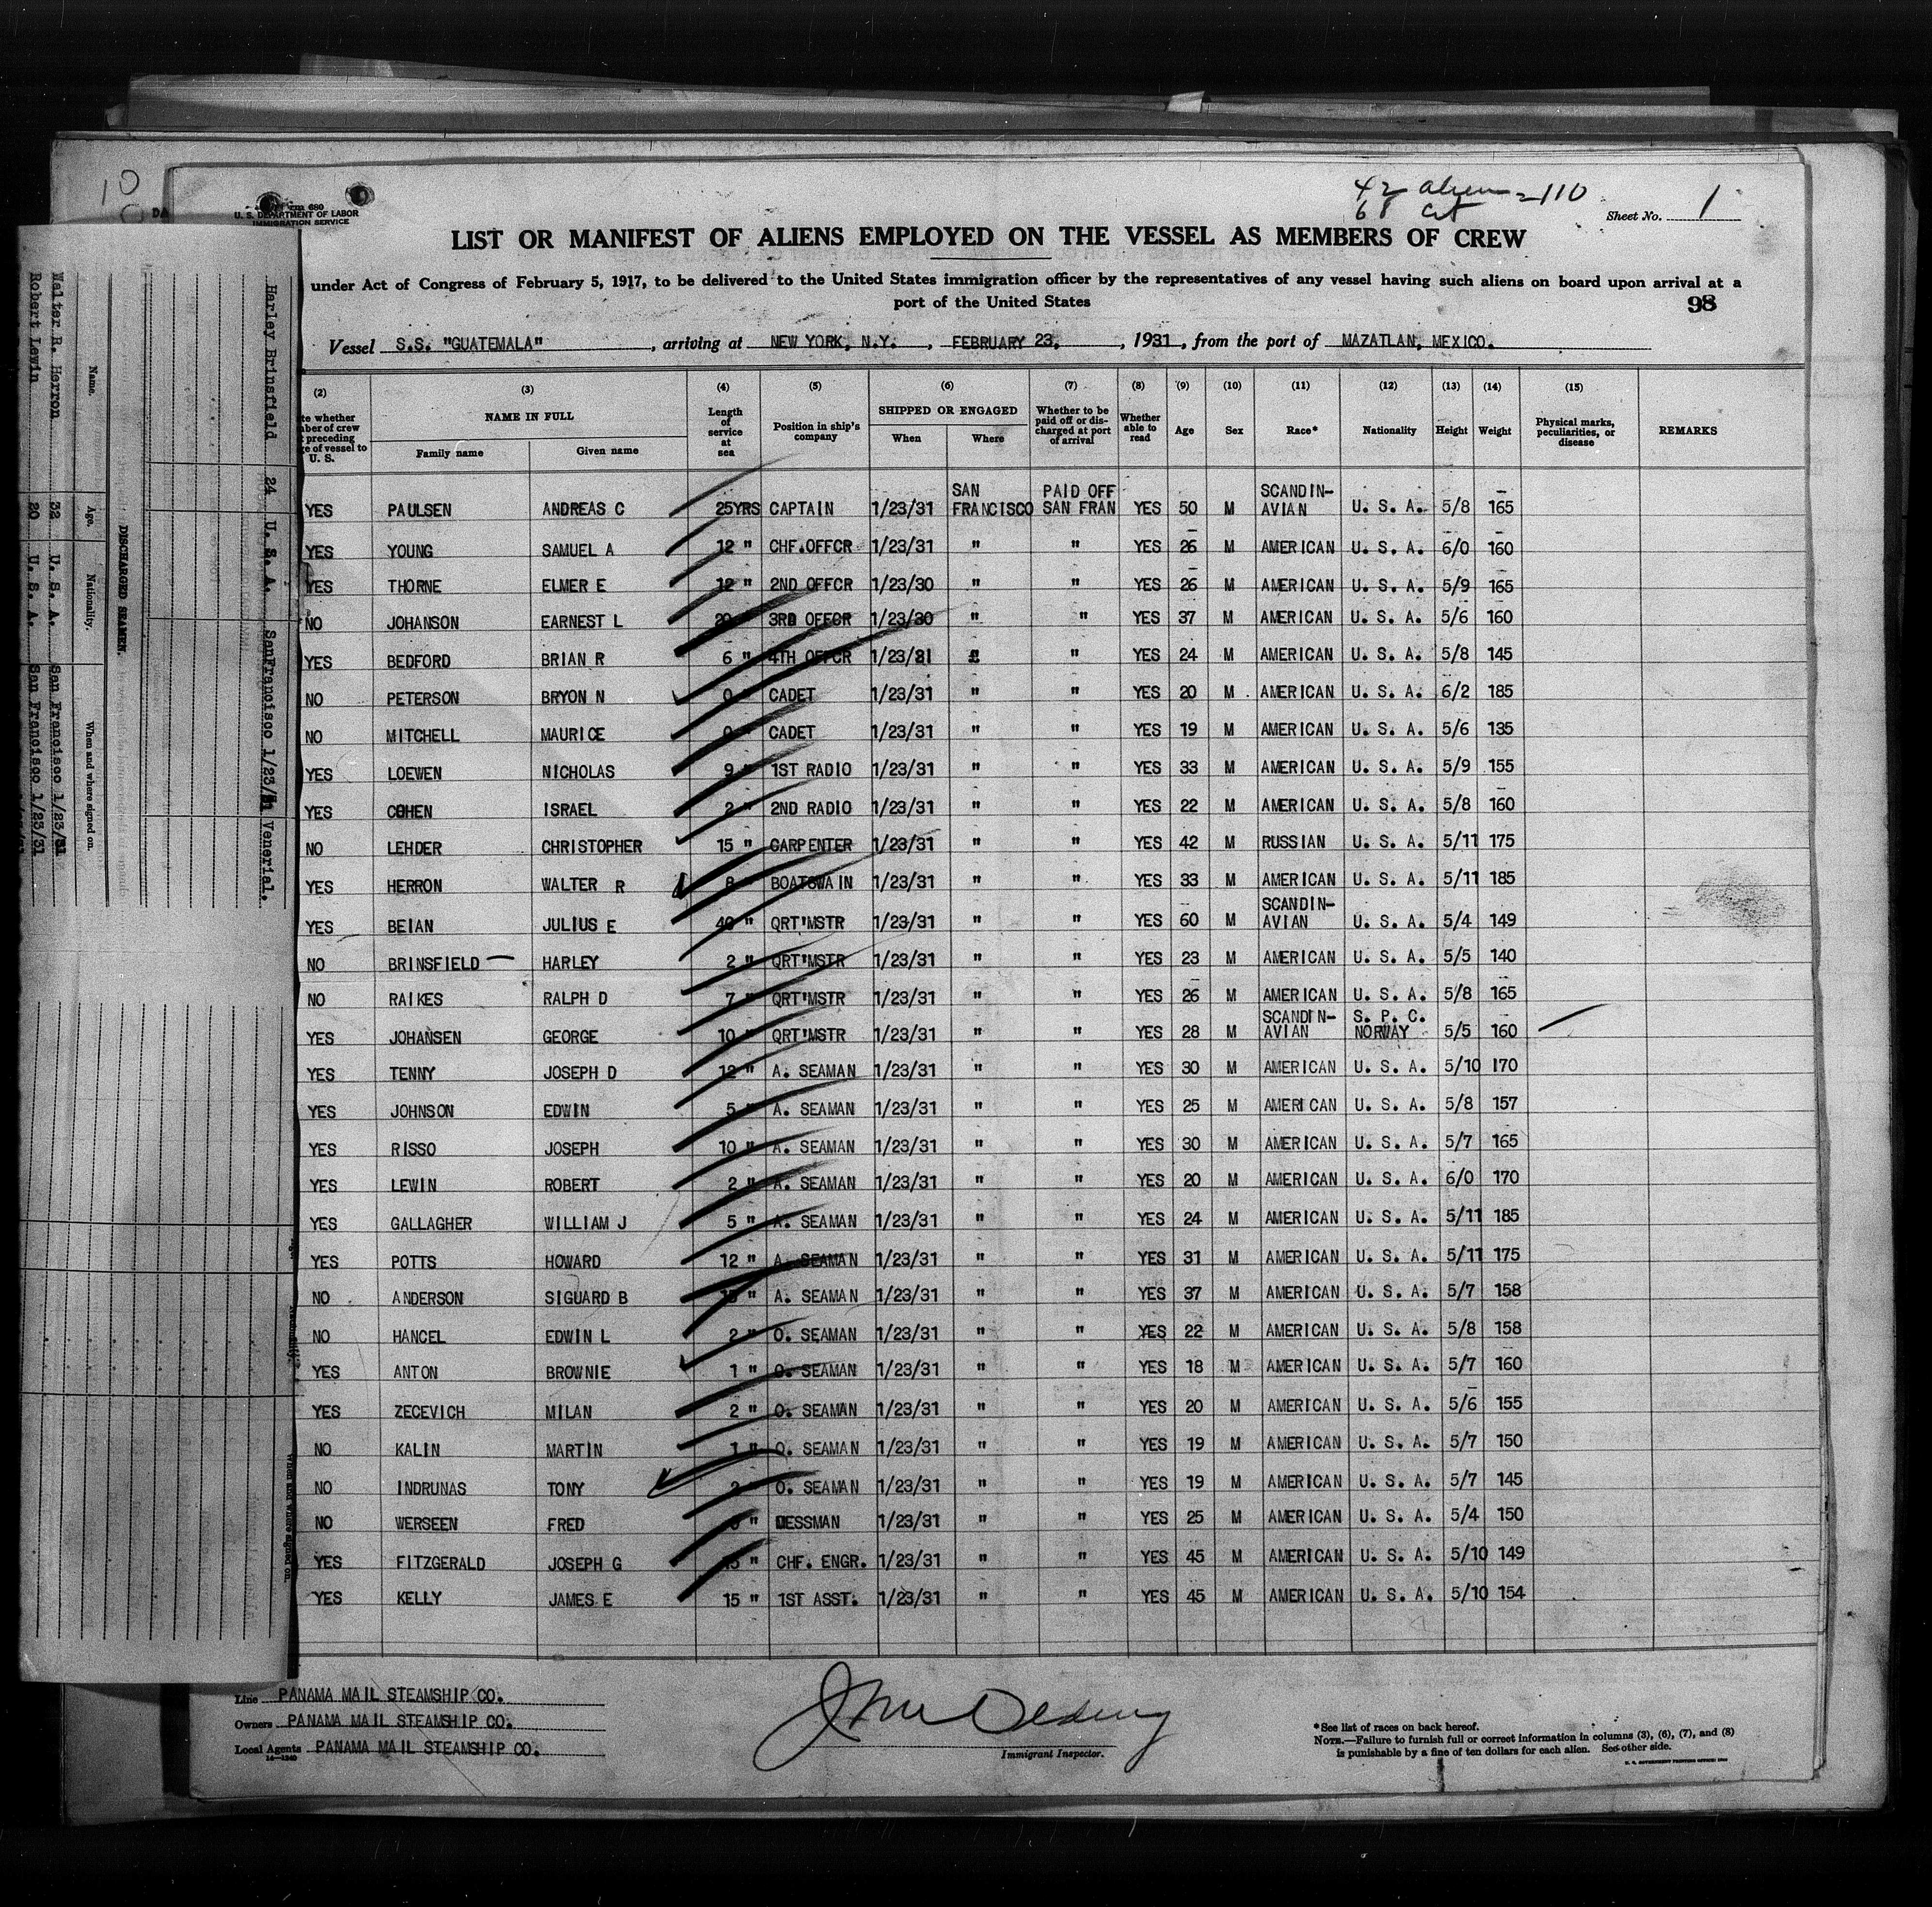 10
DA
Form 680
U. S. DEPARTMENT OF LABOR
IMMIGRATION SERVICE
42 alien = 110
68 cit
Sheet No. 1
LIST OR MANIFEST OF ALIENS EMPLOYED ON THE VESSEL AS MEMBERS OF CREW
under Act of Congress of February 5, 1917, to be delivered to the United States immigration officer by the representatives of any vessel having such aliens on board upon arrival at a
port of the United States
98
Vessel S.S. "GUATEMALA", arriving at NEW YORK, N.Y., FEBRUARY 23, 1931, from the port of MAZATLAN, MEXICO.
(2) (3) (4) (5) (6) (7) (8) (9) (10) (11) (12) (13) (14) (15)
te whether
ber of crew
preceding
ge of vessel to
U. S.
NAME IN FULL
Family name Given name
Length of service at sea
Position in ship's company
SHIPPED OR ENGAGED
When Where
Whether to be paid off or discharged at port of arrival
Whether able to read
Age Sex Race* Nationality Height Weight
Physical marks, peculiarities, or disease
REMARKS
YES PAULSEN ANDREAS C 25YRS CAPTAIN 1/23/31 SAN FRANCISCO PAID OFF SAN FRAN YES 50 M SCANDIN-AVIAN U. S. A. 5/8 165
YES YOUNG SAMUEL A 12 " CHF.OFFCR 1/23/31 " " YES 26 M AMERICAN U. S. A. 6/0 160
YES THORNE ELMER E 12 " 2ND OFFCR 1/23/30 " " YES 26 M AMERICAN U. S. A. 5/9 165
NO JOHANSON EARNEST L 20 " 3RD OFFCR 1/23/30 " " YES 37 M AMERICAN U. S. A. 5/6 160
YES BEDFORD BRIAN R 6 " 4TH OFFCR 1/23/31 " " YES 24 M AMERICAN U. S. A. 5/8 145
NO PETERSON BRYON N 0 " CADET 1/23/31 " " YES 20 M AMERICAN U. S. A. 6/2 185
NO MITCHELL MAURICE 0 " CADET 1/23/31 " " YES 19 M AMERICAN U. S. A. 5/6 135
YES LOEWEN NICHOLAS 9 " 1ST RADIO 1/23/31 " " YES 33 M AMERICAN U. S. A. 5/9 155
YES COHEN ISRAEL 2 " 2ND RADIO 1/23/31 " " YES 22 M AMERICAN U. S. A. 5/8 160
NO LEHDER CHRISTOPHER 15 " CARPENTER 1/23/31 " " YES 42 M RUSSIAN U. S. A. 5/11 175
YES HERRON WALTER R 8 " BOATSWAIN 1/23/31 " " YES 33 M AMERICAN U. S. A. 5/11 185
YES BEIAN JULIUS E 40 " QRT'MSTR 1/23/31 " " YES 60 M SCANDIN-AVIAN U. S. A. 5/4 149
NO BRINSFIELD HARLEY 2 " QRT'MSTR 1/23/31 " " YES 23 M AMERICAN U. S. A. 5/5 140
NO RAIKES RALPH D 7 " QRT'MSTR 1/23/31 " " YES 26 M AMERICAN U. S. A. 5/8 165
YES JOHANSEN GEORGE 10 " QRT'MSTR 1/23/31 " " YES 28 M SCANDIN-AVIAN S. P. C. NORWAY 5/5 160
YES TENNY JOSEPH D 12 " A. SEAMAN 1/23/31 " " YES 30 M AMERICAN U. S. A. 5/10 170
YES JOHNSON EDWIN 5 " A. SEAMAN 1/23/31 " " YES 25 M AMERICAN U. S. A. 5/8 157
YES RISSO JOSEPH 10 " A. SEAMAN 1/23/31 " " YES 30 M AMERICAN U. S. A. 5/7 165
YES LEWIN ROBERT 2 " A. SEAMAN 1/23/31 " " YES 20 M AMERICAN U. S. A. 6/0 170
YES GALLAGHER WILLIAM J 5 " A. SEAMAN 1/23/31 " " YES 24 M AMERICAN U. S. A. 5/11 185
YES POTTS HOWARD 12 " A. SEAMAN 1/23/31 " " YES 31 M AMERICAN U. S. A. 5/11 175
NO ANDERSON SIGUARD B " A. SEAMAN 1/23/31 " " YES 37 M AMERICAN U. S. A. 5/7 158
NO HANCEL EDWIN L 2 " O. SEAMAN 1/23/31 " " YES 22 M AMERICAN U. S. A. 5/8 158
YES ANTON BROWNIE 1 " O. SEAMAN 1/23/31 " " YES 18 M AMERICAN U. S. A. 5/7 160
YES ZECEVICH MILAN 2 " O. SEAMAN 1/23/31 " " YES 20 M AMERICAN U. S. A. 5/6 155
NO KALIN MARTIN 1 " O. SEAMAN 1/23/31 " " YES 19 M AMERICAN U. S. A. 5/7 150
NO INDRUNAS TONY 2 " O. SEAMAN 1/23/31 " " YES 19 M AMERICAN U. S. A. 5/7 145
NO WERSEEN FRED " MESSMAN 1/23/31 " " YES 25 M AMERICAN U. S. A. 5/4 150
YES FITZGERALD JOSEPH G " CHF. ENGR. 1/23/31 " " YES 45 M AMERICAN U. S. A. 5/10 149
YES KELLY JAMES E 15 " 1ST ASST. 1/23/31 " " YES 45 M AMERICAN U. S. A. 5/10 154
Line PANAMA MAIL STEAMSHIP CO.
Owners PANAMA MAIL STEAMSHIP CO.
Local Agents PANAMA MAIL STEAMSHIP CO.
14—1240
Immigrant Inspector.
*See list of races on back hereof.
NOTE.—Failure to furnish full or correct information in columns (3), (6), (7), and (8)
is punishable by a fine of ten dollars for each alien. See other side.
DISCHARGED SEAMEN.
Name. Age. Nationality. When and where signed on.
Walter R. Herron 32 U. S. A. San Francisco 1/23/31
Robert Lewin 20 U. S. A. San Francisco 1/23/31
Harley Brinsfield 24 U. S. A. SanFrancisco 1/23/31 Venerial.
When and where signed on.